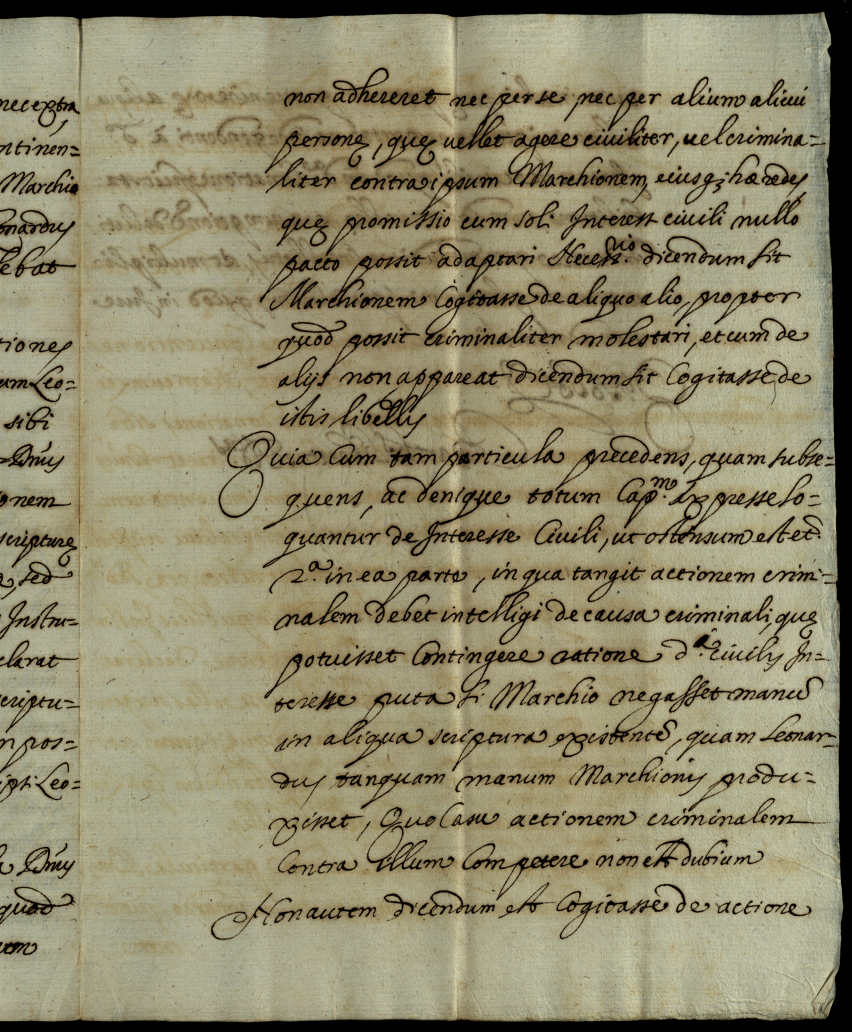 nec extra
ntinen=
Marchio
onardus
ebat
tiones
um Leo=
sibi
Dnus
onem
scripturę
a, sed
Instru=
clarat
criptu=
n pos=
ipt. Leo=
a Dnus
quod
um
non adhereret nec per se nec per alium alicui
personę, quę uellet agere ciuiliter, uel crimina=
liter contra ipsum Marchionem, eiusq; hæredes
quę promissio cum soli Interesse ciuili nullo
pacto possit adaptari Necess.rio dicendum sit
Marchionem Cogitasse de aliquo alio, propter
quod possit criminaliter molestari, et cum de
alijs non appareat dicendum sit Cogitasse de
istis libellis
Quia Cum tam particula precedens, quam subse=
quens, ac denique totum Cap.m expresse lo=
quantur de Interesse Ciuili, ut ostensum est et
2.a in ea parte, in qua tangit actionem crimi=
nalem debet intelligi de causa criminali, quę
potuisset Contingere ratione d.i Ciuilis In=
teresse puta si Marchio negasset manũ
in aliqua scriptura existentẽ, quam Leonar=
dus tanquam manum Marchionis produ=
xisset, Quo Casu actionem criminalem
Contra illum Competere non est dubium
Non autem dicendum est Cogitasse de actione